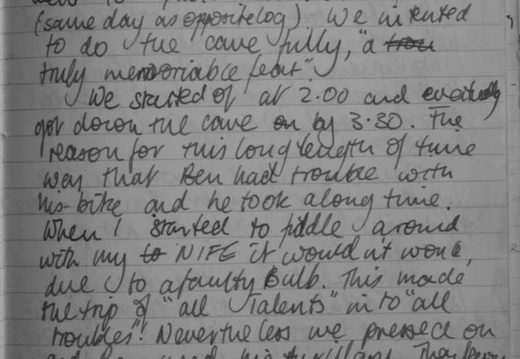 (same day as opposite log). We intented
to do the cave fully, "a
truly memoriable feat".
We started of at 2.00 and eventually
got down the cave by 3.30. The
reason for this long length of time
way that Ben had trouble with
his bike and he took along time.
When I started to fiddle around
with my NIFE it would n't work,
due to a faulty Bulb. This made
the trip of "all Talents" in to "all
troubles"! Nevertheless we pressed on